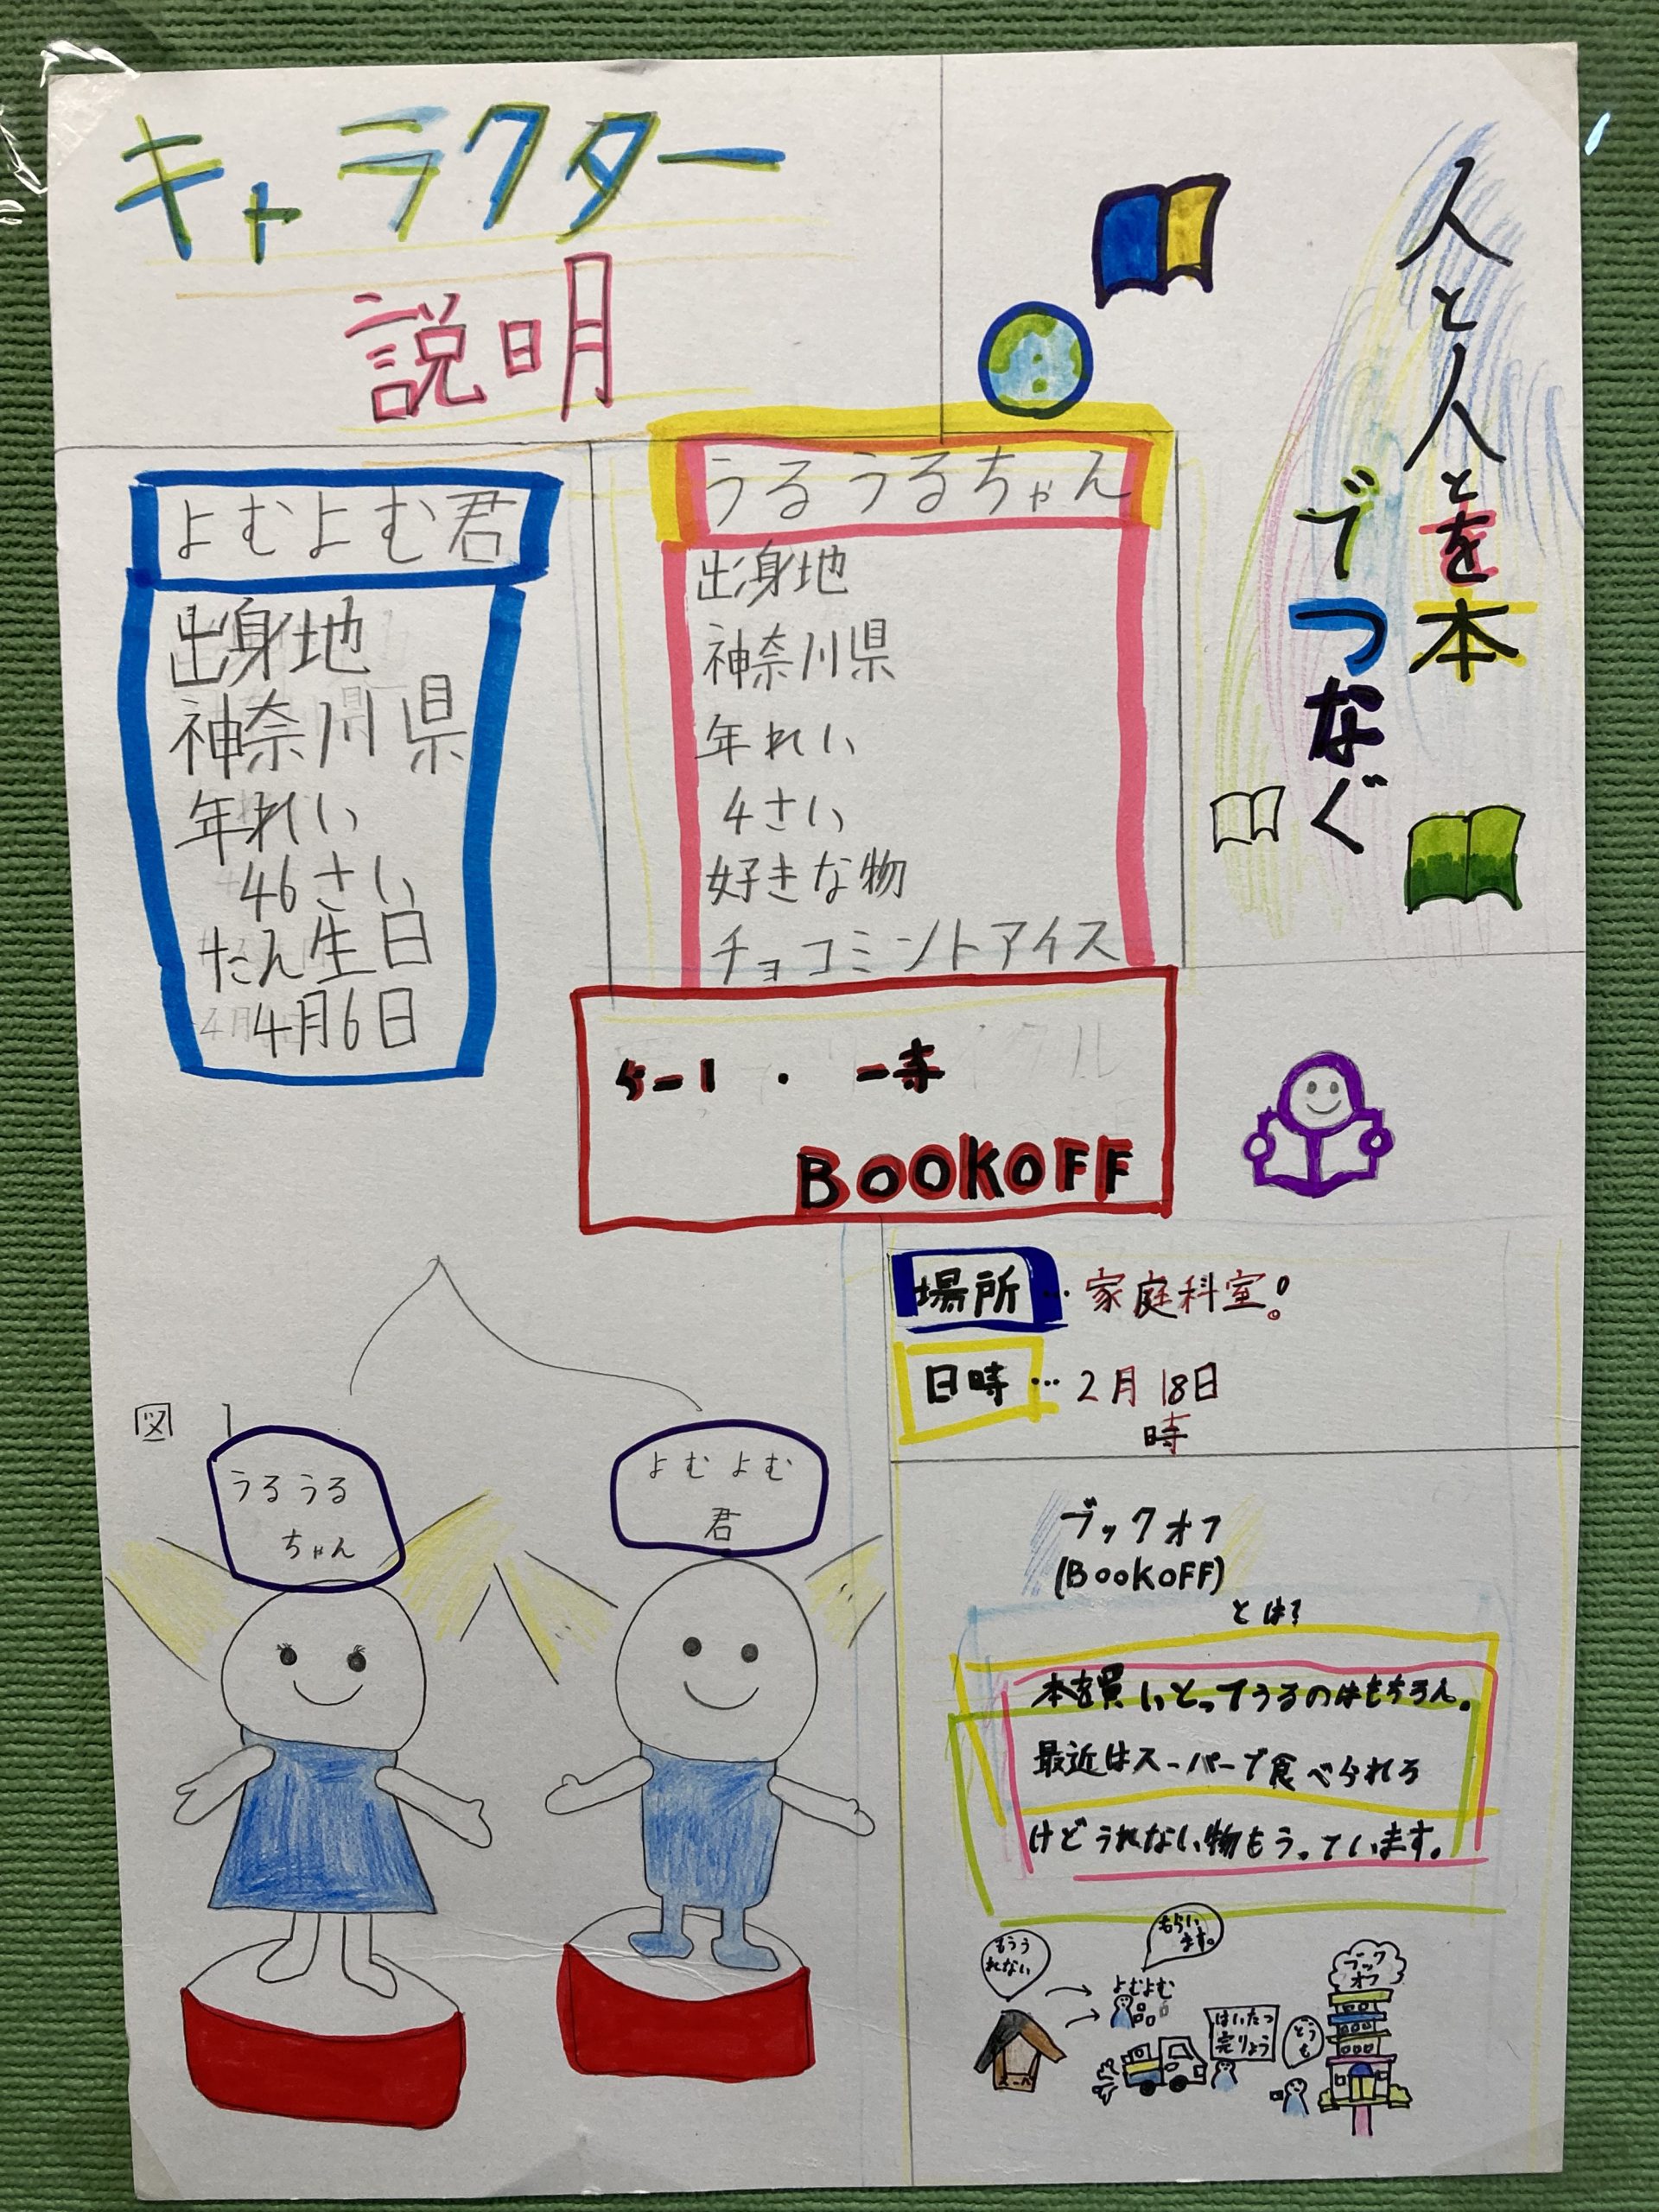 キャラクター
説明
人と人とを本
でつなぐ
よむよむ君
出身地
神奈川県
年れい
46さい
たん生日
4月6日
うるうるちゃん
出身地
神奈川県
年れい
4さい
好きな物
チョコミントアイス
BOOKOFF
場所…家庭科室!
日時…2月18日
時
図1
うるうる
ちゃん
よむよむ
君
ブックオフ
(BOOKOFF)
とは?
本を買いとってうるのはもちろん。
最近はスーパーで食べられる
けどうれない物もうっています。
もうう
れない
もらい
ます。
よむよむ
スーパー
はいたつ
完りょう
どうも
ブック
オフ